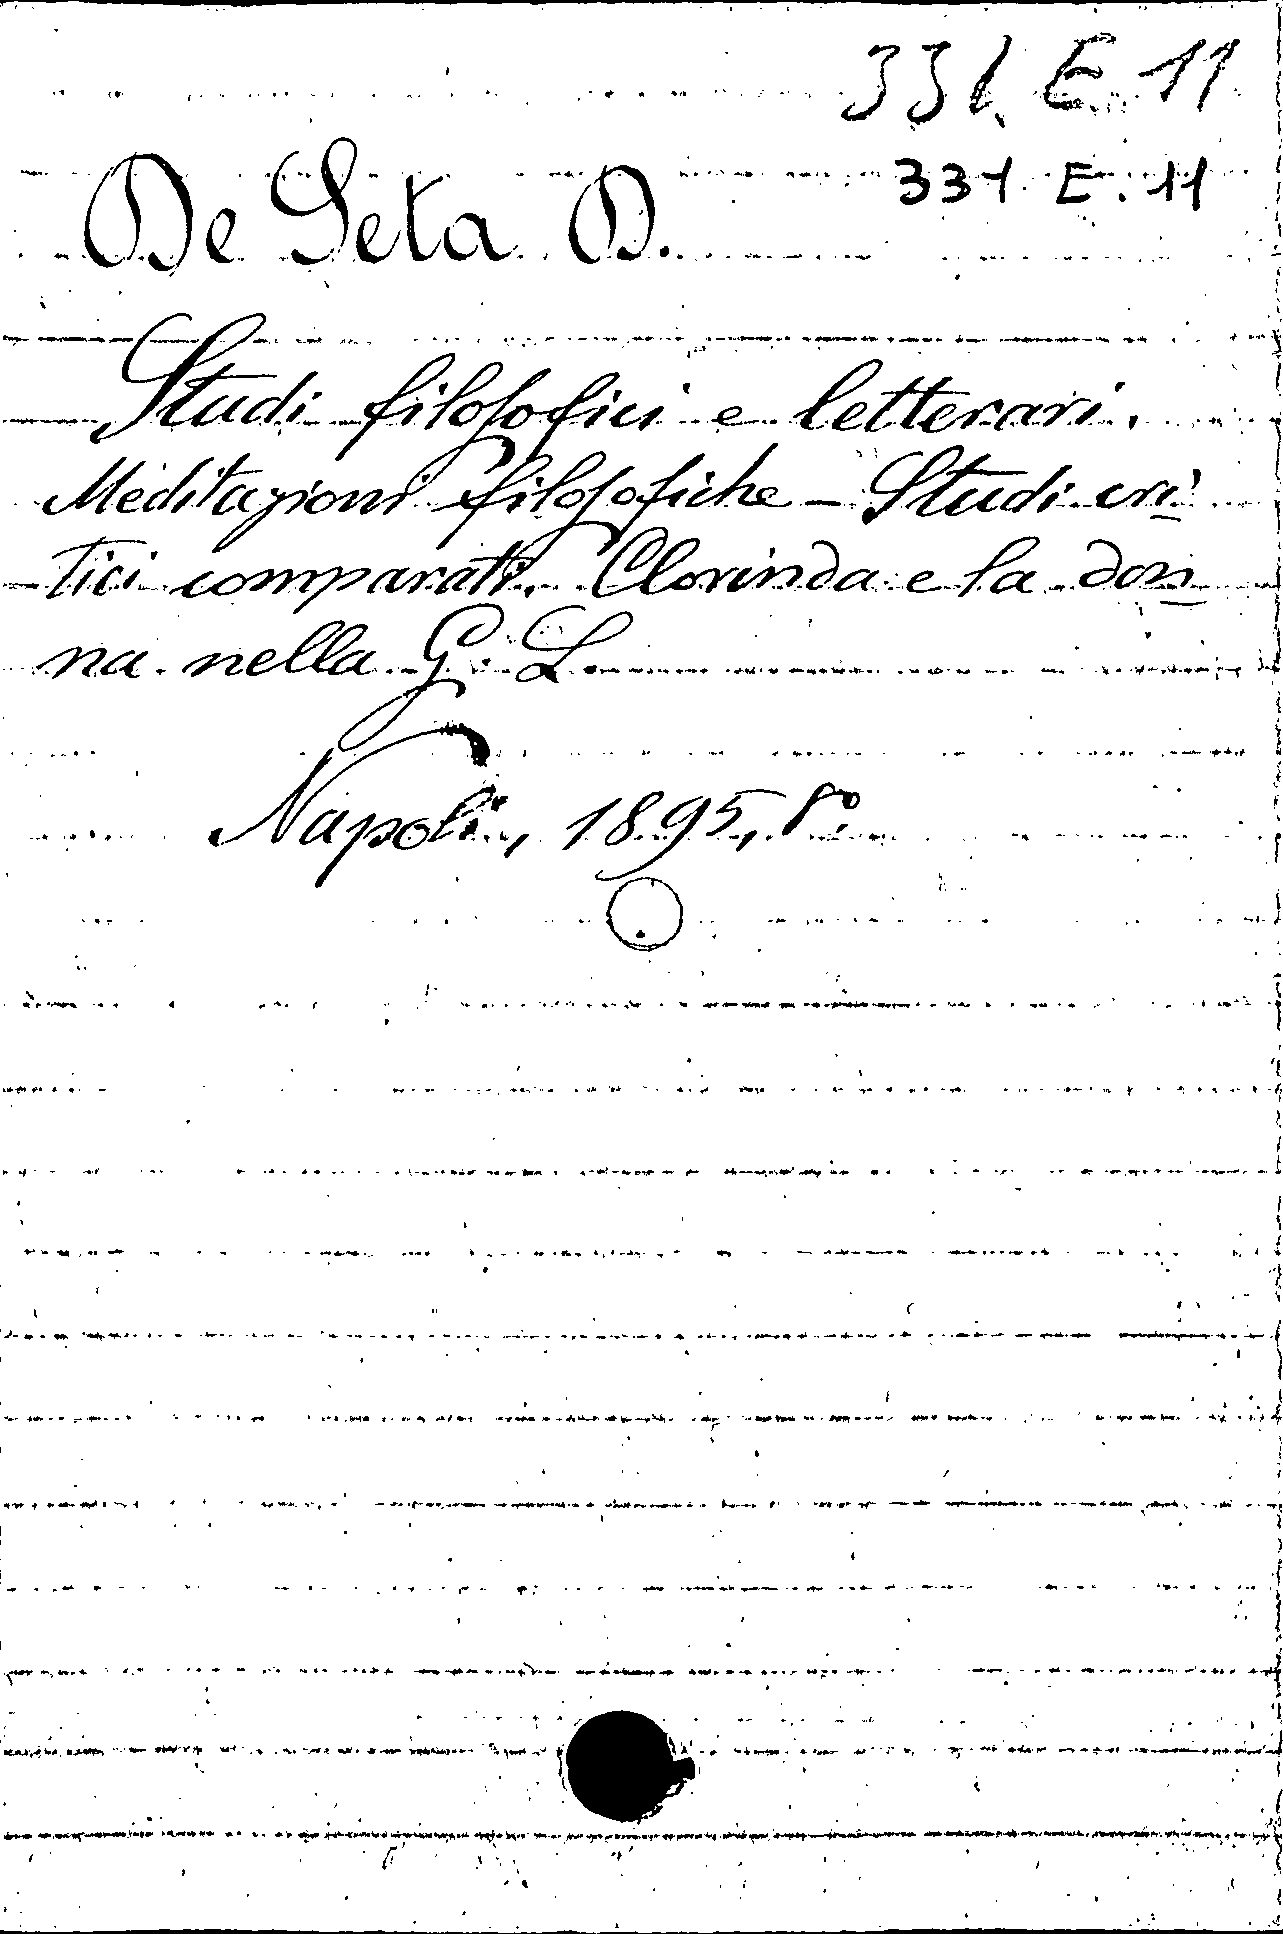 331. E. 11
331. E. 11
De Seta D.
Studi filosofici e letterari.
Meditazioni filosofiche - Studi cri-
tici comparati. Clorinda e la don-
na nella G. L.
Napoli, 1895, 8º